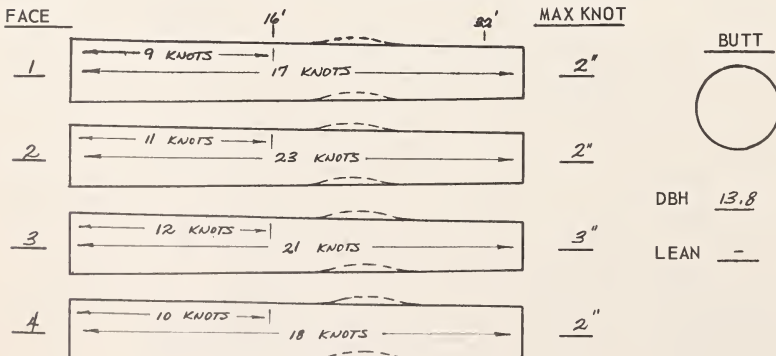 FACE 16' 32' MAX KNOT
BUTT
9 KNOTS
1 17 KNOTS 2"
11 KNOTS
2 23 KNOTS 2"
DBH 13.8
12 KNOTS
3 21 KNOTS 3"
LEAN -
10 KNOTS
4 18 KNOTS 2"